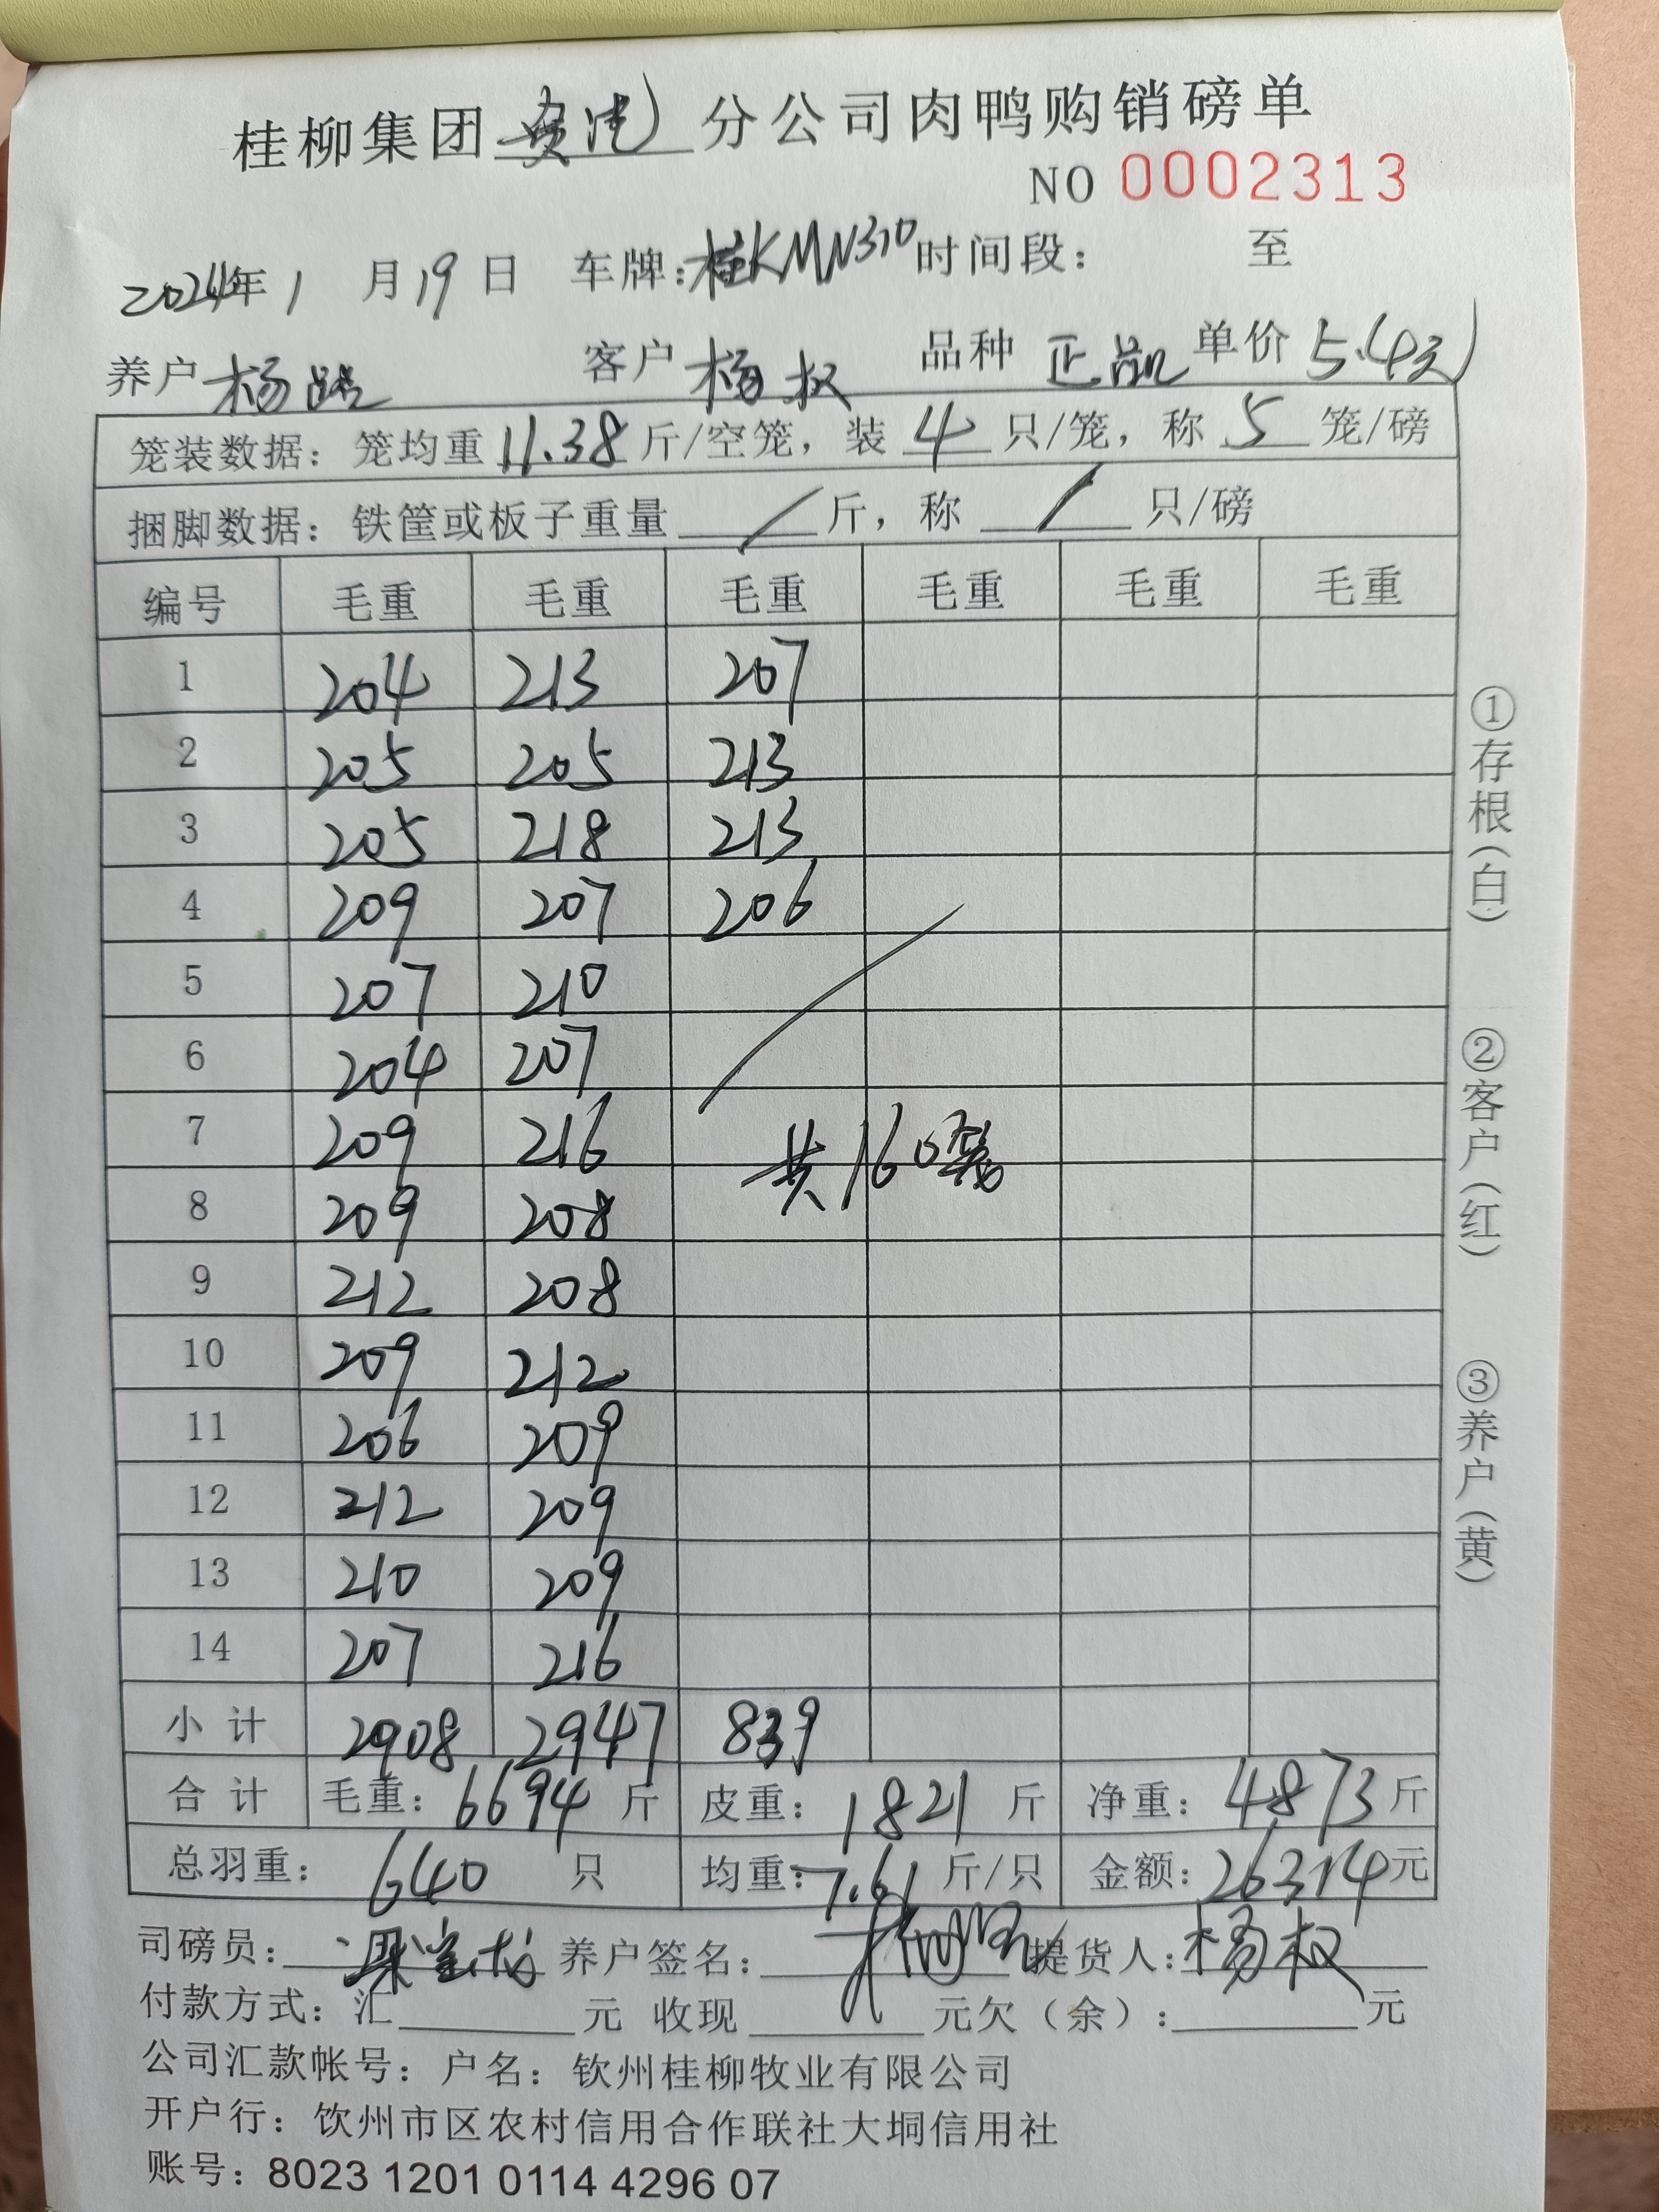 桂柳集团 贵港 分公司肉鸭购销磅单
NO 0002313
2024年1月19日 车牌:桂KMN310时间段: 至
养户 杨 客户 杨权 品种 正 单价 5.4元
笼装数据: 笼均重 11.38 斤/空笼, 装 4 只/笼, 称 5 笼/磅
捆脚数据: 铁筐或板子重量 / 斤, 称 / 只/磅
编号 毛重 毛重 毛重 毛重 毛重 毛重
1 204 213 207
2 205 205 213
3 205 218 213
4 209 207 206
5 207 210
6 204 207
7 209 216 共160笼
8 209 208
9 212 208
10 209 212
11 206 209
12 212 209
13 210 209
14 207 216
小计 2908 2947 839
合计 毛重: 6694 斤 皮重: 1821 斤 净重: 4873 斤
总羽重: 640 只 均重: 7.61 斤/只 金额: 26314元
司磅员: 养户签名: 提货人: 杨权
付款方式: 汇 元 收现 元欠(余): 元
公司汇款帐号: 户名: 钦州桂柳牧业有限公司
开户行: 饮州市区农村信用合作联社大垌信用社
账号: 8023 1201 0114 4296 07
①存根(白)
②客户(红)
③养户(黄)